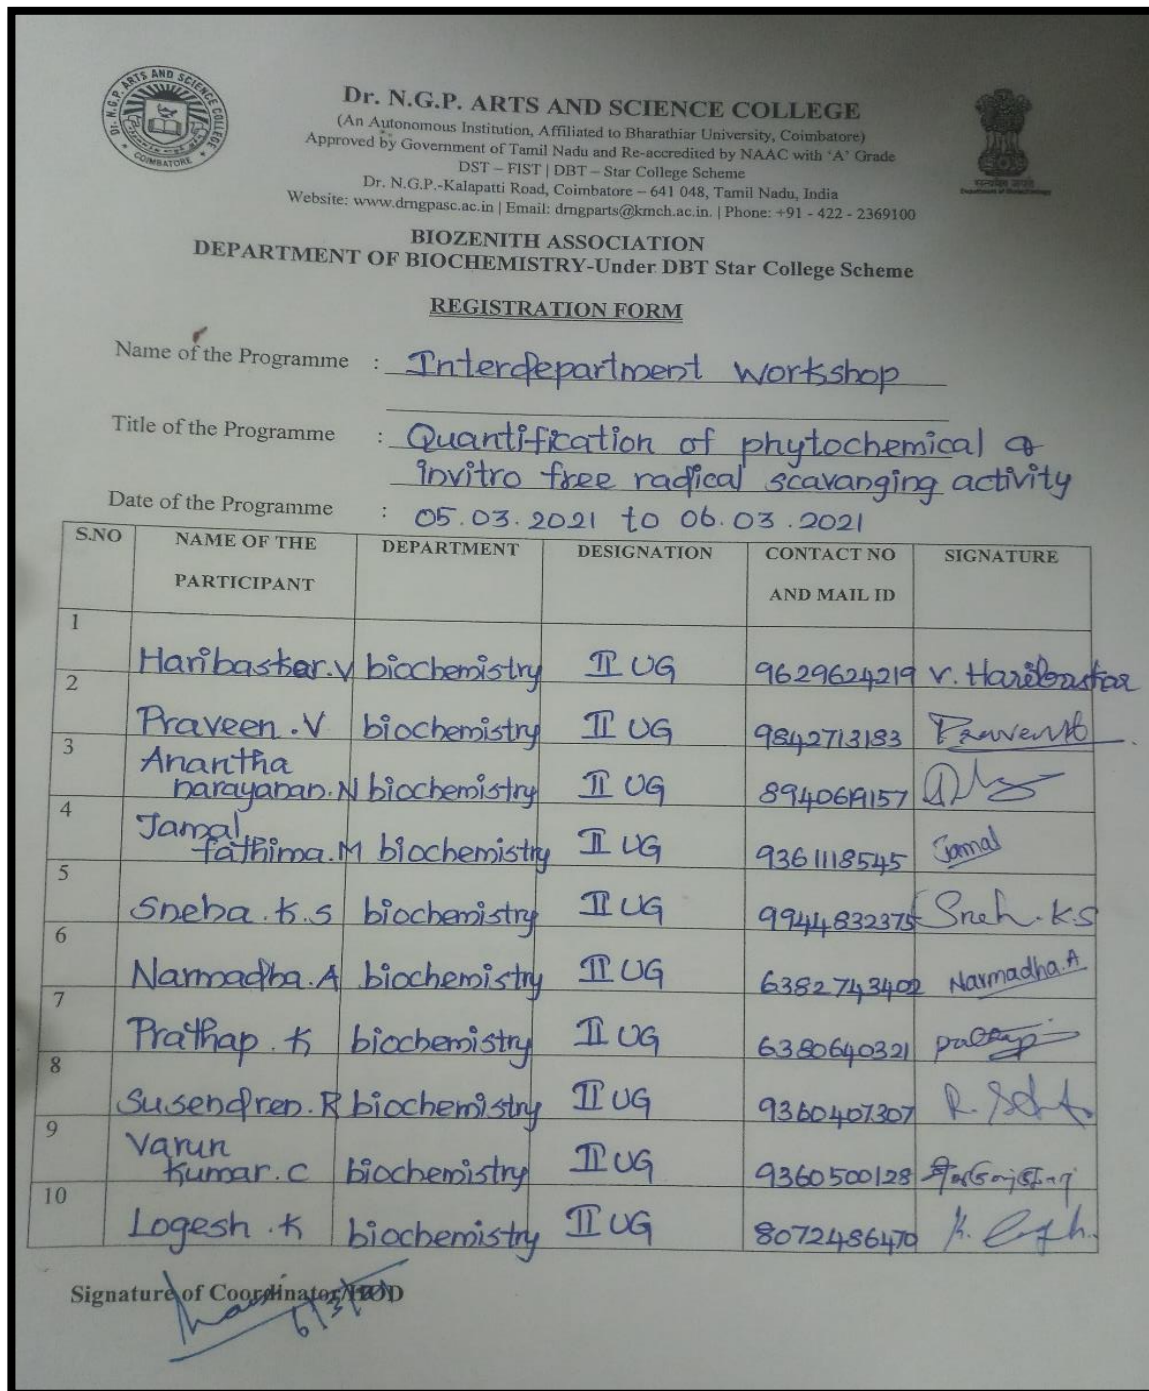 Dr. N.G.P. ARTS AND SCIENCE COLLEGE
COIMBATORE
Dr. N.G.P. ARTS AND SCIENCE COLLEGE
(An Autonomous Institution, Affiliated to Bharathiar University, Coimbatore)
Approved by Government of Tamil Nadu and Re-accredited by NAAC with 'A' Grade
DST – FIST | DBT – Star College Scheme
Dr. N.G.P.-Kalapatti Road, Coimbatore – 641 048, Tamil Nadu, India
Website: www.drngpasc.ac.in | Email: drngparts@kmch.ac.in. | Phone: +91 - 422 - 2369100
सत्यमेव जयते
Department of Biotechnology
BIOZENITH ASSOCIATION
DEPARTMENT OF BIOCHEMISTRY-Under DBT Star College Scheme
REGISTRATION FORM
Name of the Programme : Interdepartment workshop
Title of the Programme : Quantification of phytochemical &
invitro free radical scavanging activity
Date of the Programme : 05.03.2021 to 06.03.2021
S.NO NAME OF THE PARTICIPANT DEPARTMENT DESIGNATION CONTACT NO AND MAIL ID SIGNATURE
1 Haribaskar.V biochemistry II UG 9629624219 V. Haribaskar
2 Praveen.V biochemistry II UG 9842713183
3 Anantha
narayanan.N biochemistry II UG
4 Jamal
fathima.M biochemistry II UG 9361118545 Jamal
5 Sneha.K.S biochemistry II UG 9944832375 Sneh.K.S
6 Narmadha.A biochemistry II UG 6382743402 Narmadha.A
7 Prathap.K biochemistry II UG 6380640321
8 Susendren.R biochemistry II UG 9360407307
9 Varun
kumar.C biochemistry II UG 9360500128
10 Logesh.K biochemistry II UG 8072486470
Signature of Coordinator/HOD